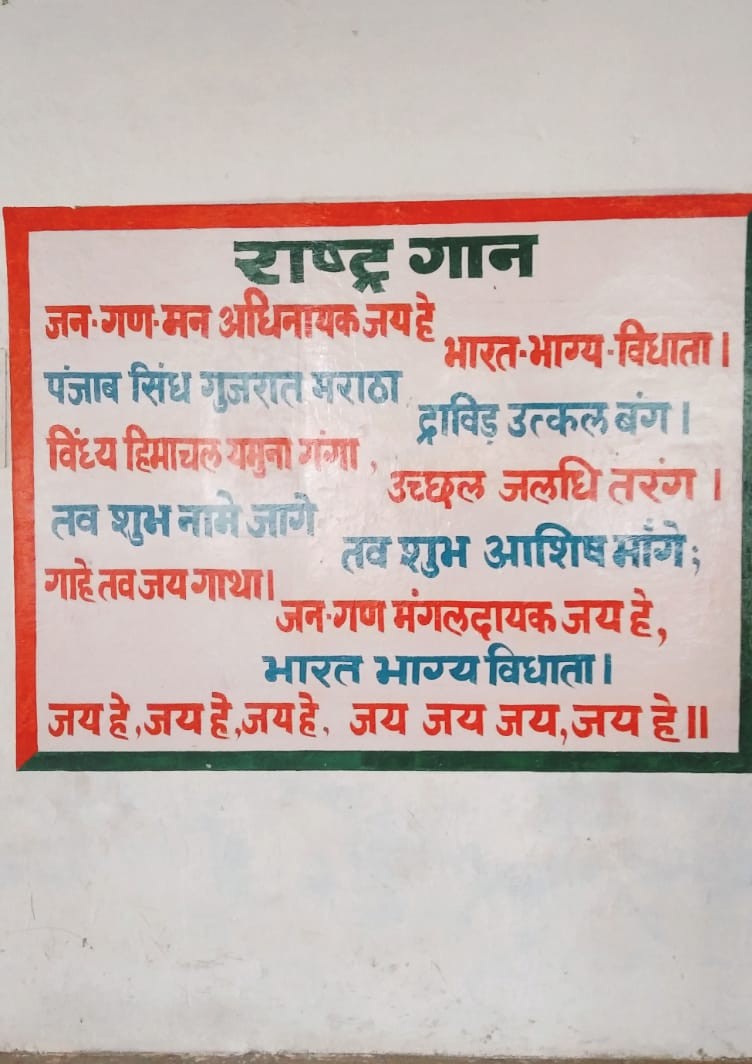 राष्ट्र गान
जन-गण-मन अधिनायक जय हे
भारत-भाग्य-विधाता।
पंजाब सिंध गुजरात मराठा
द्राविड़ उत्कल बंग।
विंध्य हिमाचल यमुना गंगा,
उच्छल जलधि तरंग।
तव शुभ नामे जागे
तव शुभ आशिष माँगे;
गाहे तव जय गाथा।
जन-गण मंगलदायक जय हे,
भारत भाग्य विधाता।
जय हे, जय हे, जय हे, जय जय जय, जय हे॥